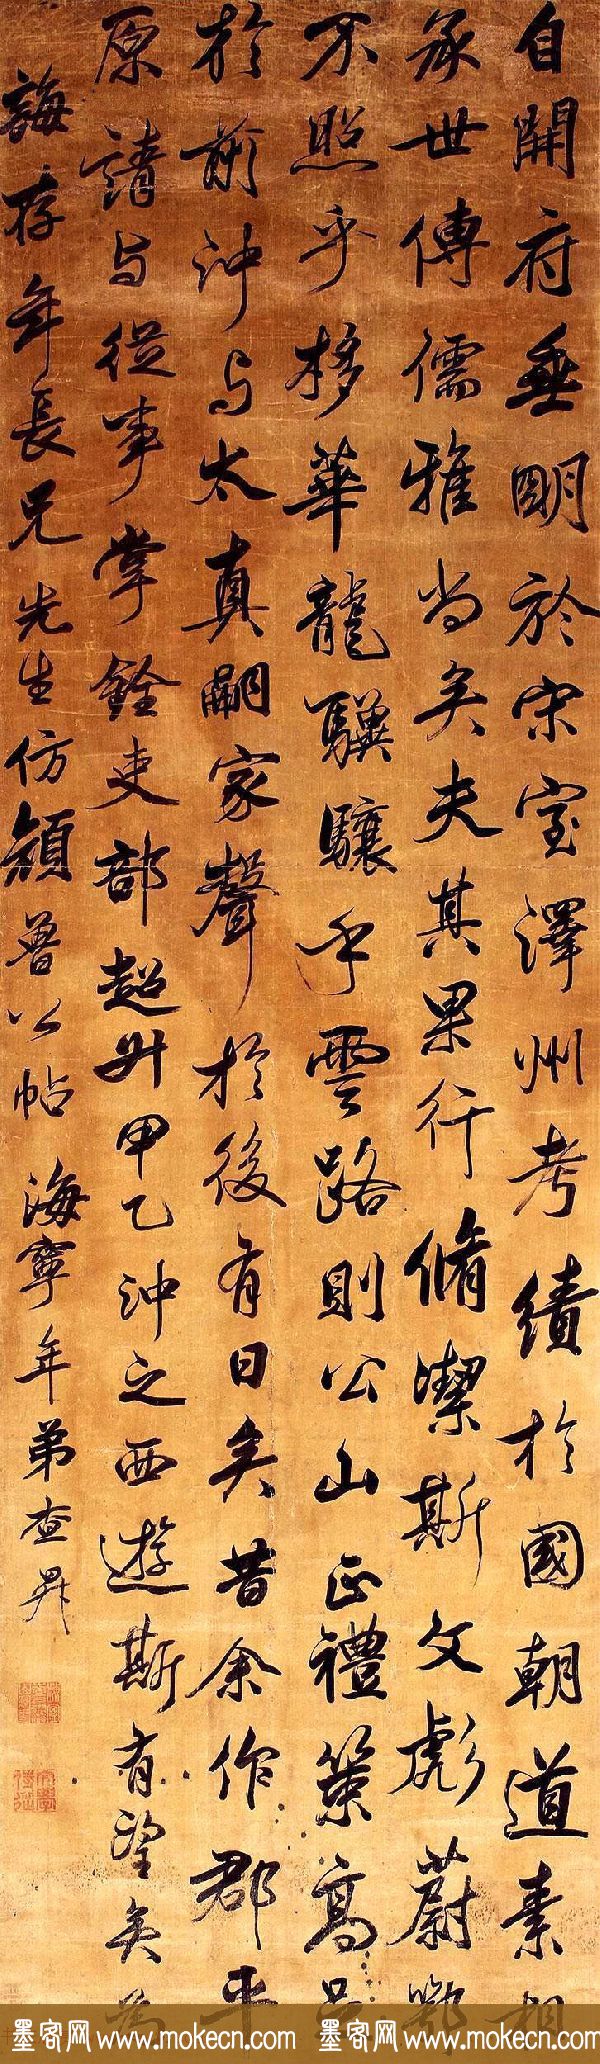 自開府垂明於宋室澤州考績於國朝道素相
承世傳儒雅尚矣夫其果行脩潔斯文彪蔚鄂
不照乎棣華龍驥驤乎雲路則公山正禮策高足
於前沖与太真嗣家聲於後有日矣昔余作郡平
原請与從事掌銓吏部超升甲乙沖之西遊斯有望矣為
誨存年長兄先生仿顏魯公帖 海寧年弟查昇
墨客网 www.mokecn.com 墨客网 www.mokecn.com